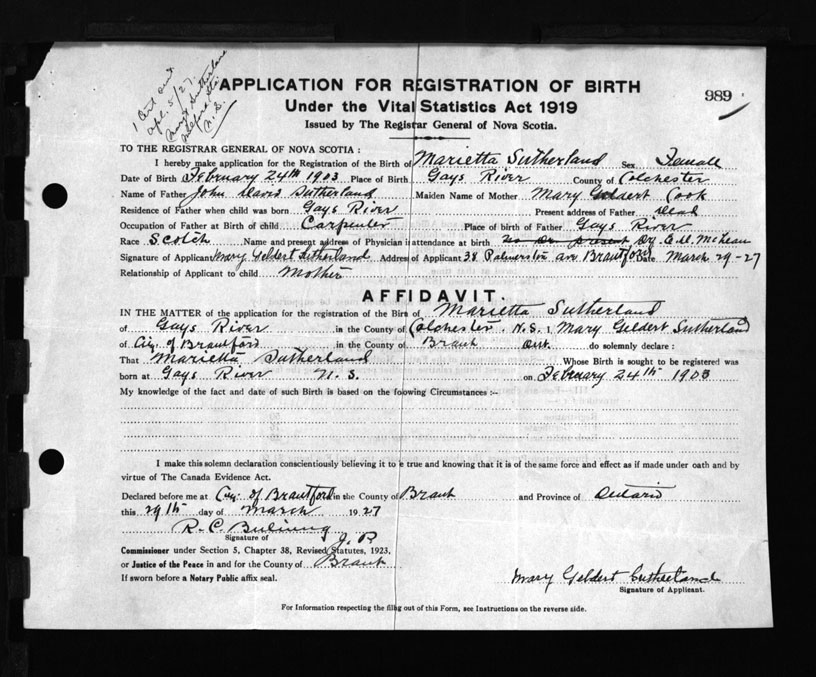 1 Cert out
Apl. 5/27.
Mary Sutherland
N.S.
APPLICATION FOR REGISTRATION OF BIRTH
989
Under the Vital Statistics Act 1919
Issued by The Registrar General of Nova Scotia.
TO THE REGISTRAR GENERAL OF NOVA SCOTIA :
I hereby make application for the Registration of the Birth of Marietta Sutherland Sex Female
Date of Birth February 24th 1903 Place of Birth Gays River County of Colchester
Name of Father John Sutherland Maiden Name of Mother Mary Geldert Cook
Residence of Father when child was born Gays River Present address of Father Dead
Occupation of Father at Birth of child Carpenter Place of birth of Father Gays River
Race Scotch Name and present address of Physician i attendance at birth no Dr present Dr McLean
Signature of Applicant Mary Geldert Sutherland Address of Applicant 38 Palmerston ave Brantford Date March 29-27
Relationship of Applicant to child Mother
AFFIDAVIT.
IN THE MATTER of the application for the registration of the Birt of Marietta Sutherland
of Gays River in the County of Colchester N.S. I Mary Geldert Sutherland
of City of Brantford in the County of Brant Ont. do solemnly declare :
That Marietta Sutherland Whose Birth is sought to be registered was
born at Gays River N.S. on February 24th 1903
My knowledge of the fact and date of such Birth is based on the foowing Circumstances :-
I make this solemn declaration conscientiously believing it to e true and knowing that it is of the same force and effect as if made under oath and by
virtue of The Canada Evidence Act.
Declared before me at City of Brantford in the County of Brant and Province of Ontario
this 29th day of March 1927
R.C.
Signature of J.P.
Commissioner under Section 5, Chapter 38, Revised Statutes, 1923,
or Justice of the Peace in and for the County of Brant
If sworn before a Notary Public affix seal.
Mary Geldert Sutherland
Signature of Applicant.
For Information respecting the filing out of this Form, see Instructions on the reverse side.